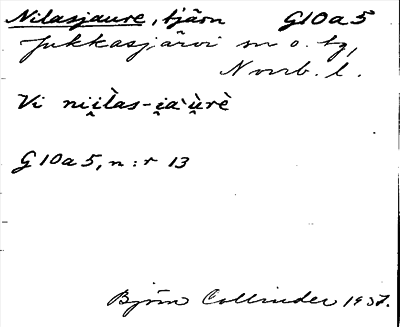 Nilasjaure, tjärn G10a5
Jukkasjärvi sn o. tg,
Norrb. l.
Vi nii̯làs-i̯a'ùrè
G10a5, n:r 13
Björn Collinder 1937.